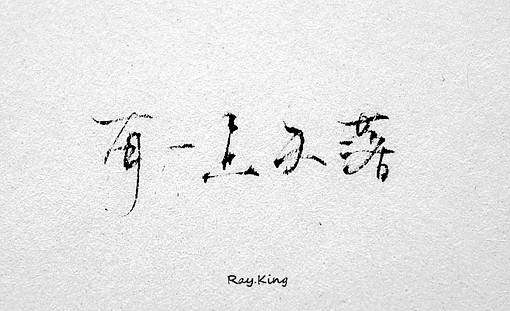 有一上不著
Ray.King